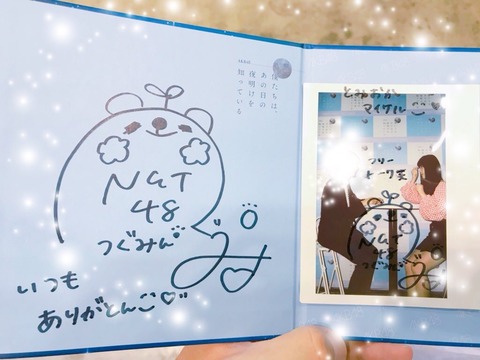 僕たちは、
あの日の
夜明けを
知っている
NGT
48
つぐみん
いつも
ありがとんこ♡
とみおか
マイケル
フリー
トーク笑
NGT
48
つぐみん